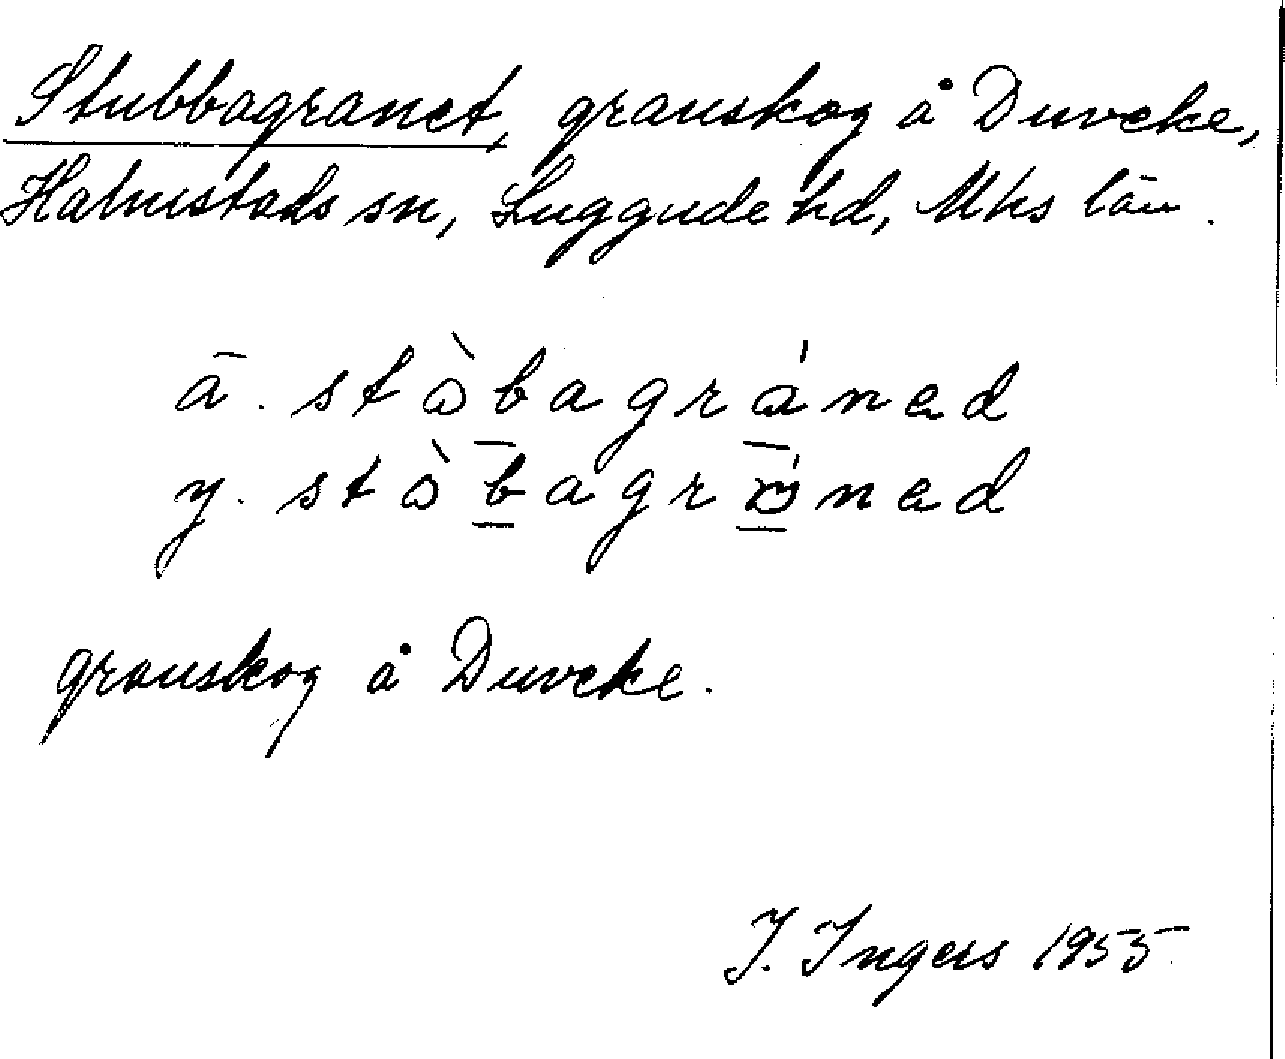 Stubbagranet, granskog å Duveke,
Halmstads sn, Luggude hd, Mhs län.
ä. stòbagráned
y. stòbagråned
granskog å Duveke.
I. Ingers 1955